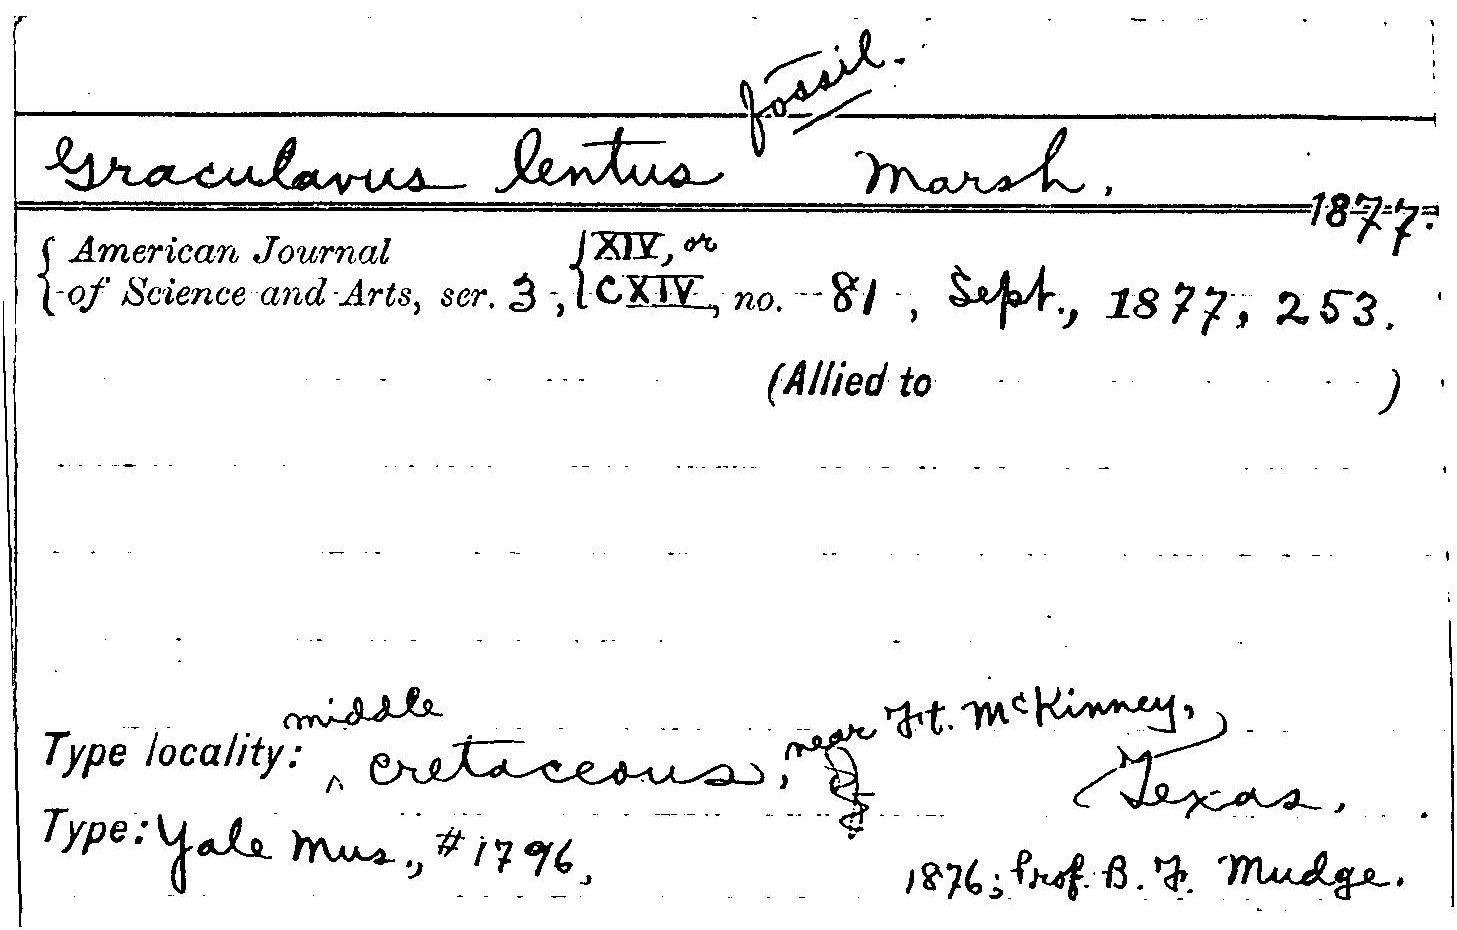 fossil.
Graculavus lentus Marsh.
1877.
{ American Journal { XIV, or
of Science and Arts, ser. 3, CXIV, no. 81, Sept., 1877, 253.
(Allied to )
middle near Ft. McKinney,
Type locality: ^ cretaceous, Texas.
Type: Yale Mus., #1796,
1876; Prof. B. F. Mudge.